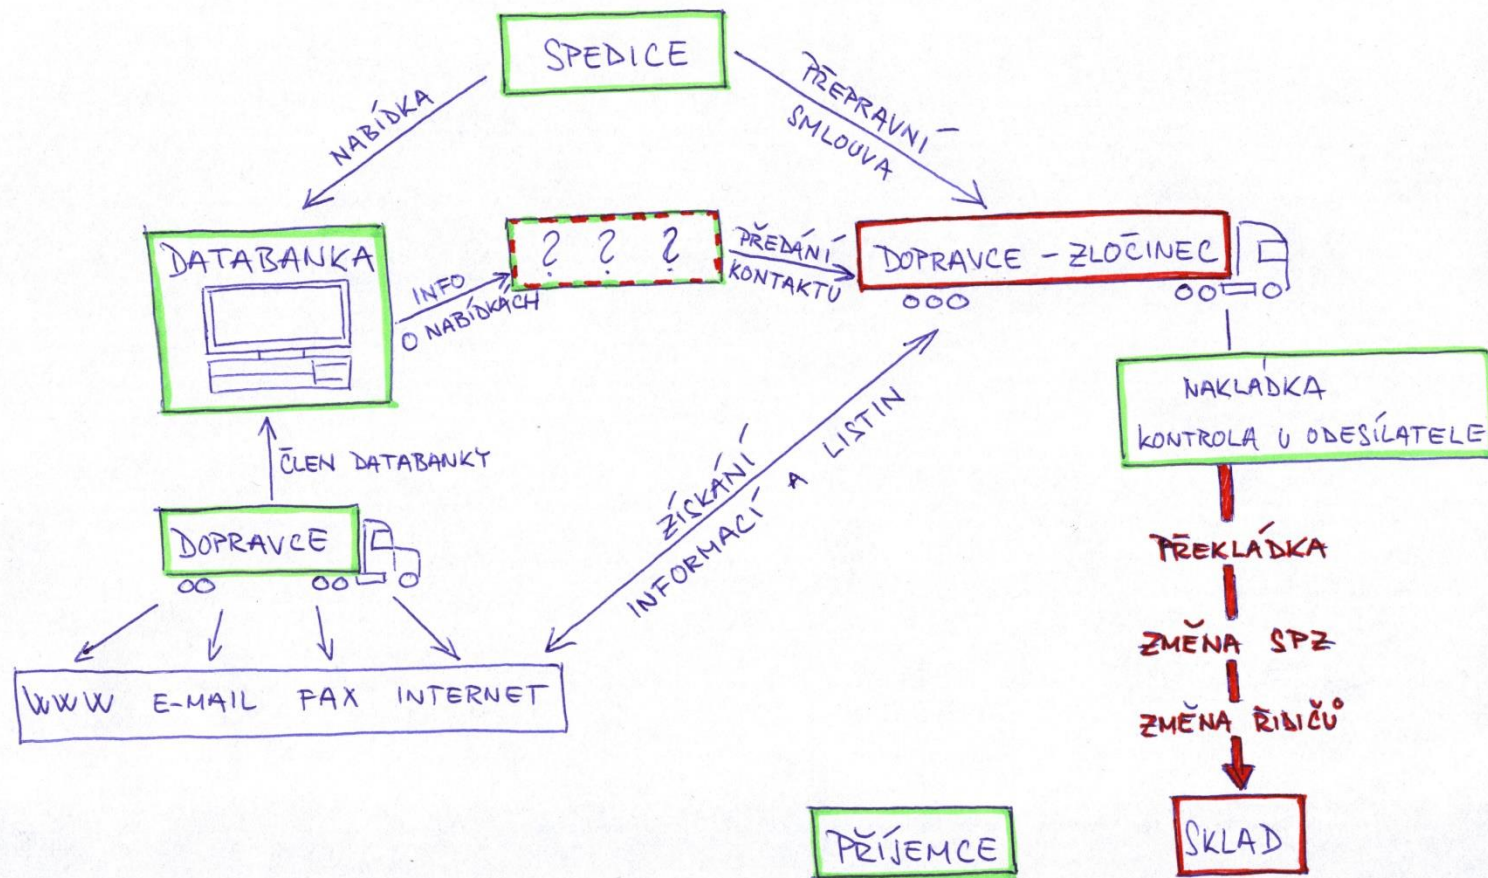 SPEDICE
NABÍDKA
PŘEPRAVNÍ
SMLOUVA
DATABANKA
INFO
O NABÍDKÁCH
? ? ?
PŘEDÁNÍ
KONTAKTŮ
DOPRAVCE - ZLOČINEC
NAKLÁDKA
KONTROLA U ODESÍLATELE
ČLEN DATABANKY
DOPRAVCE
ZÍSKÁNÍ
INFORMACÍ A LISTIN
WWW E-MAIL FAX INTERNET
PŘEKLÁDKA
ZMĚNA SPZ
ZMĚNA ŘIDIČŮ
PŘÍJEMCE
SKLAD